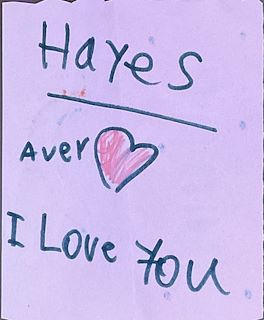 Hayes
Aver
I Love You